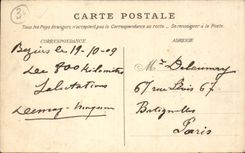 3
CARTE POSTALE
Tous les Pays étrangers n'acceptent pas la Correspondance au recto. - Se renseigner à la Poste.
CORRESPONDANCE
ADRESSE
Béziers le 19-10-09
Les 800 kilomètres
Salutations
Mr Delaunay
67 rue
67
Batignolles
Paris